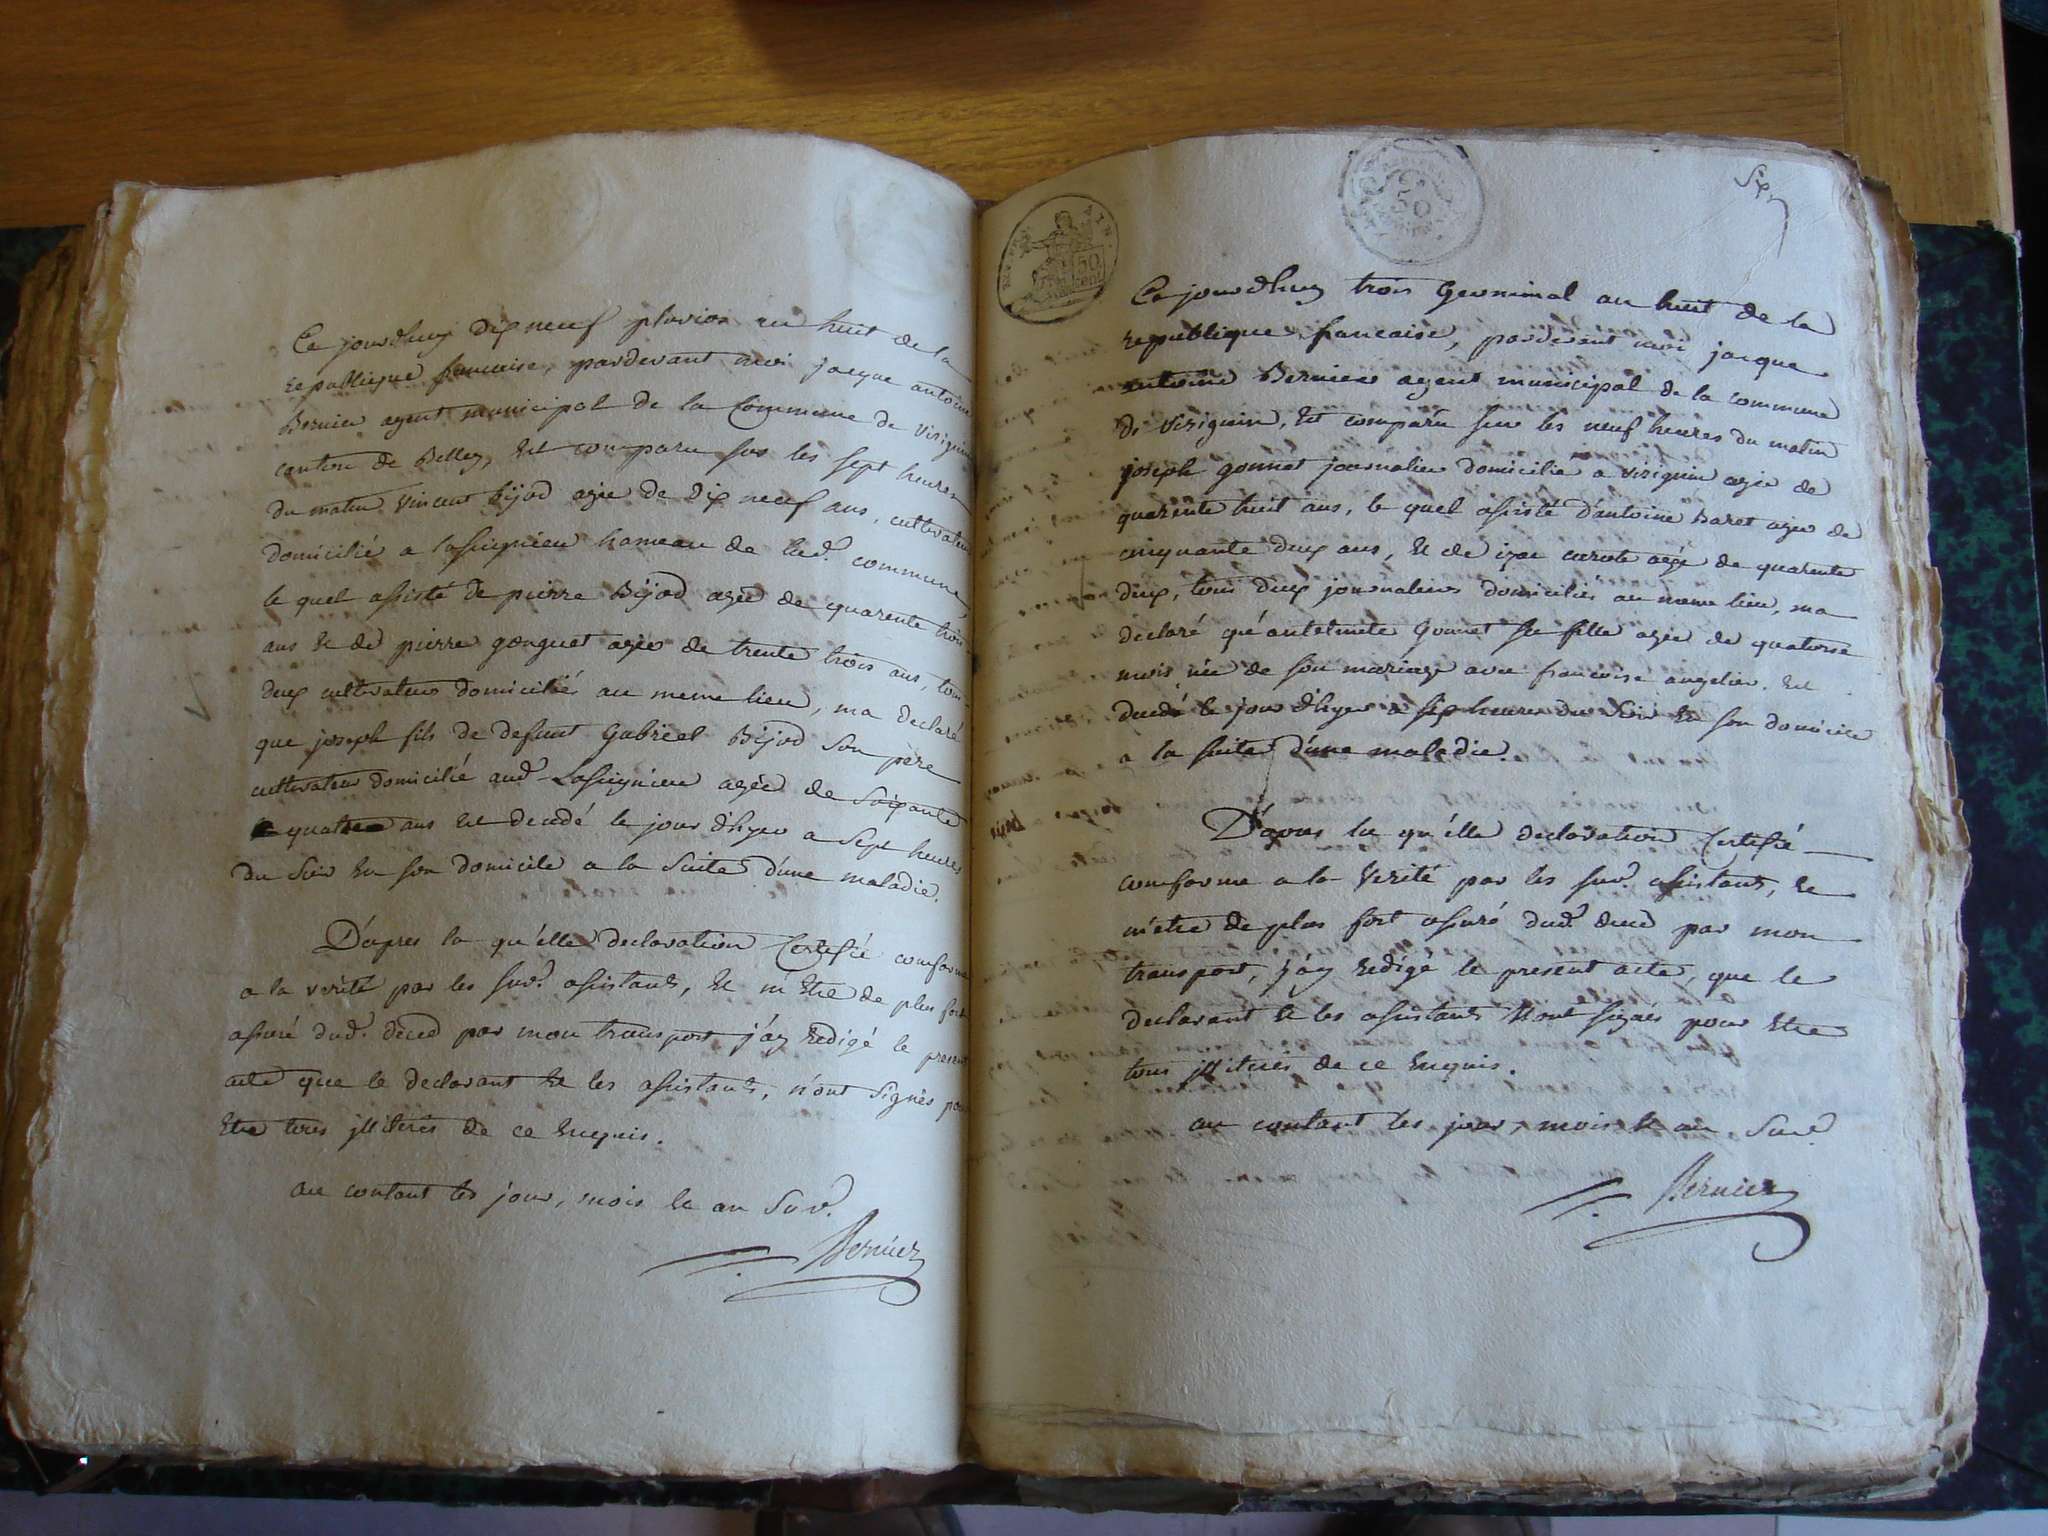 Ce jourdhuy dix neuf pluviose an huit de la
republique francaise, pardevant moi jacque antoine
Bernier agent municipal de la Commune de Virignin
canton de Belley, Est comparu sur les sept heures
du matin Vincent Bijod agée de dix neuf ans, cultivateur
domicilié a lassignieu hameau de lad.e commune,
le quel assisté de pierre Bijod agée de quarente trois
ans et de pierre gonguet agée de trente trois ans, tous
deux cultivateurs domiciliés au meme lieu, ma declaré
que joseph fils de defunt Gabriel Bijod son père
cultivateur domicilié aud.t Lassignieu agée de soixante
quatre ans Est decedé le jour d'hyer a sept heures
du soir En son domicile a la suite d'une maladie.
D'apres la qu'elle declaration Certifié conforme
a la verité par les sus.d assistants, et m'Etre de plus fort
assuré dud.t deced par mon transport j'ay Redigé le present
acte que le declarant et les assistants, n'ont signés pour
Etre tous illiterés de ce Enquis.
au contant les jour, mois et an Sus.d
Bernier
Six
50
Ce jourdhuy trois Germinal an huit de la
republique francaise, pardevant moi jacque
antoine Bernier agent municipal de la commune
de Virignin, Est comparu sur les neuf heures du matin
joseph gonnet journalier domicilié a virignin agée de
quarente huit ans, le quel assisté d'antoine Baret agée de
cinquante deux ans, et de agée de quarente
deux, tous deux journaliers domiciliés au meme lieu, ma
declaré qu'antelmete Gonnet sa fille agée de quatorse
mois née de son mariage avec francoise angelier. Est
decedé le jour d'hyer a six heures du soir En son domicile
a la suite d'une maladie.
D'apres la qu'elle declaration Certifié
conforme a la Verité par les sus.d assistants, et
m'etre de plus fort assuré dud.t deced par mon
transport, j'ay Redigé le present acte, que le
declarant et les assistants N'ont signés pour Etre
tous illiterés de ce Enquis.
au contant les jour, mois et an Sus.d
Bernier